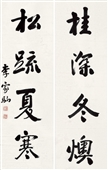 桂深冬燠
松疏夏寒
李家灿